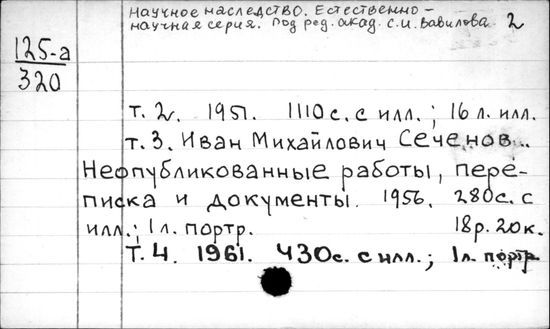 Научное наследство. Естественно-
научная серия. Под ред. акад. С.И. Вавилова 2
125-а
320
Т. 2. 1951. 1110 с. с илл.; 16 л. илл.
т. 3. Иван Михайлович Сеченов..
Неопубликованные работы, пере-
писка и документы. 1956. 280с. с
илл.; 1 л. портр. 18р. 20к.
Т. 4. 1961. 430с. с илл.; 1л. портр.